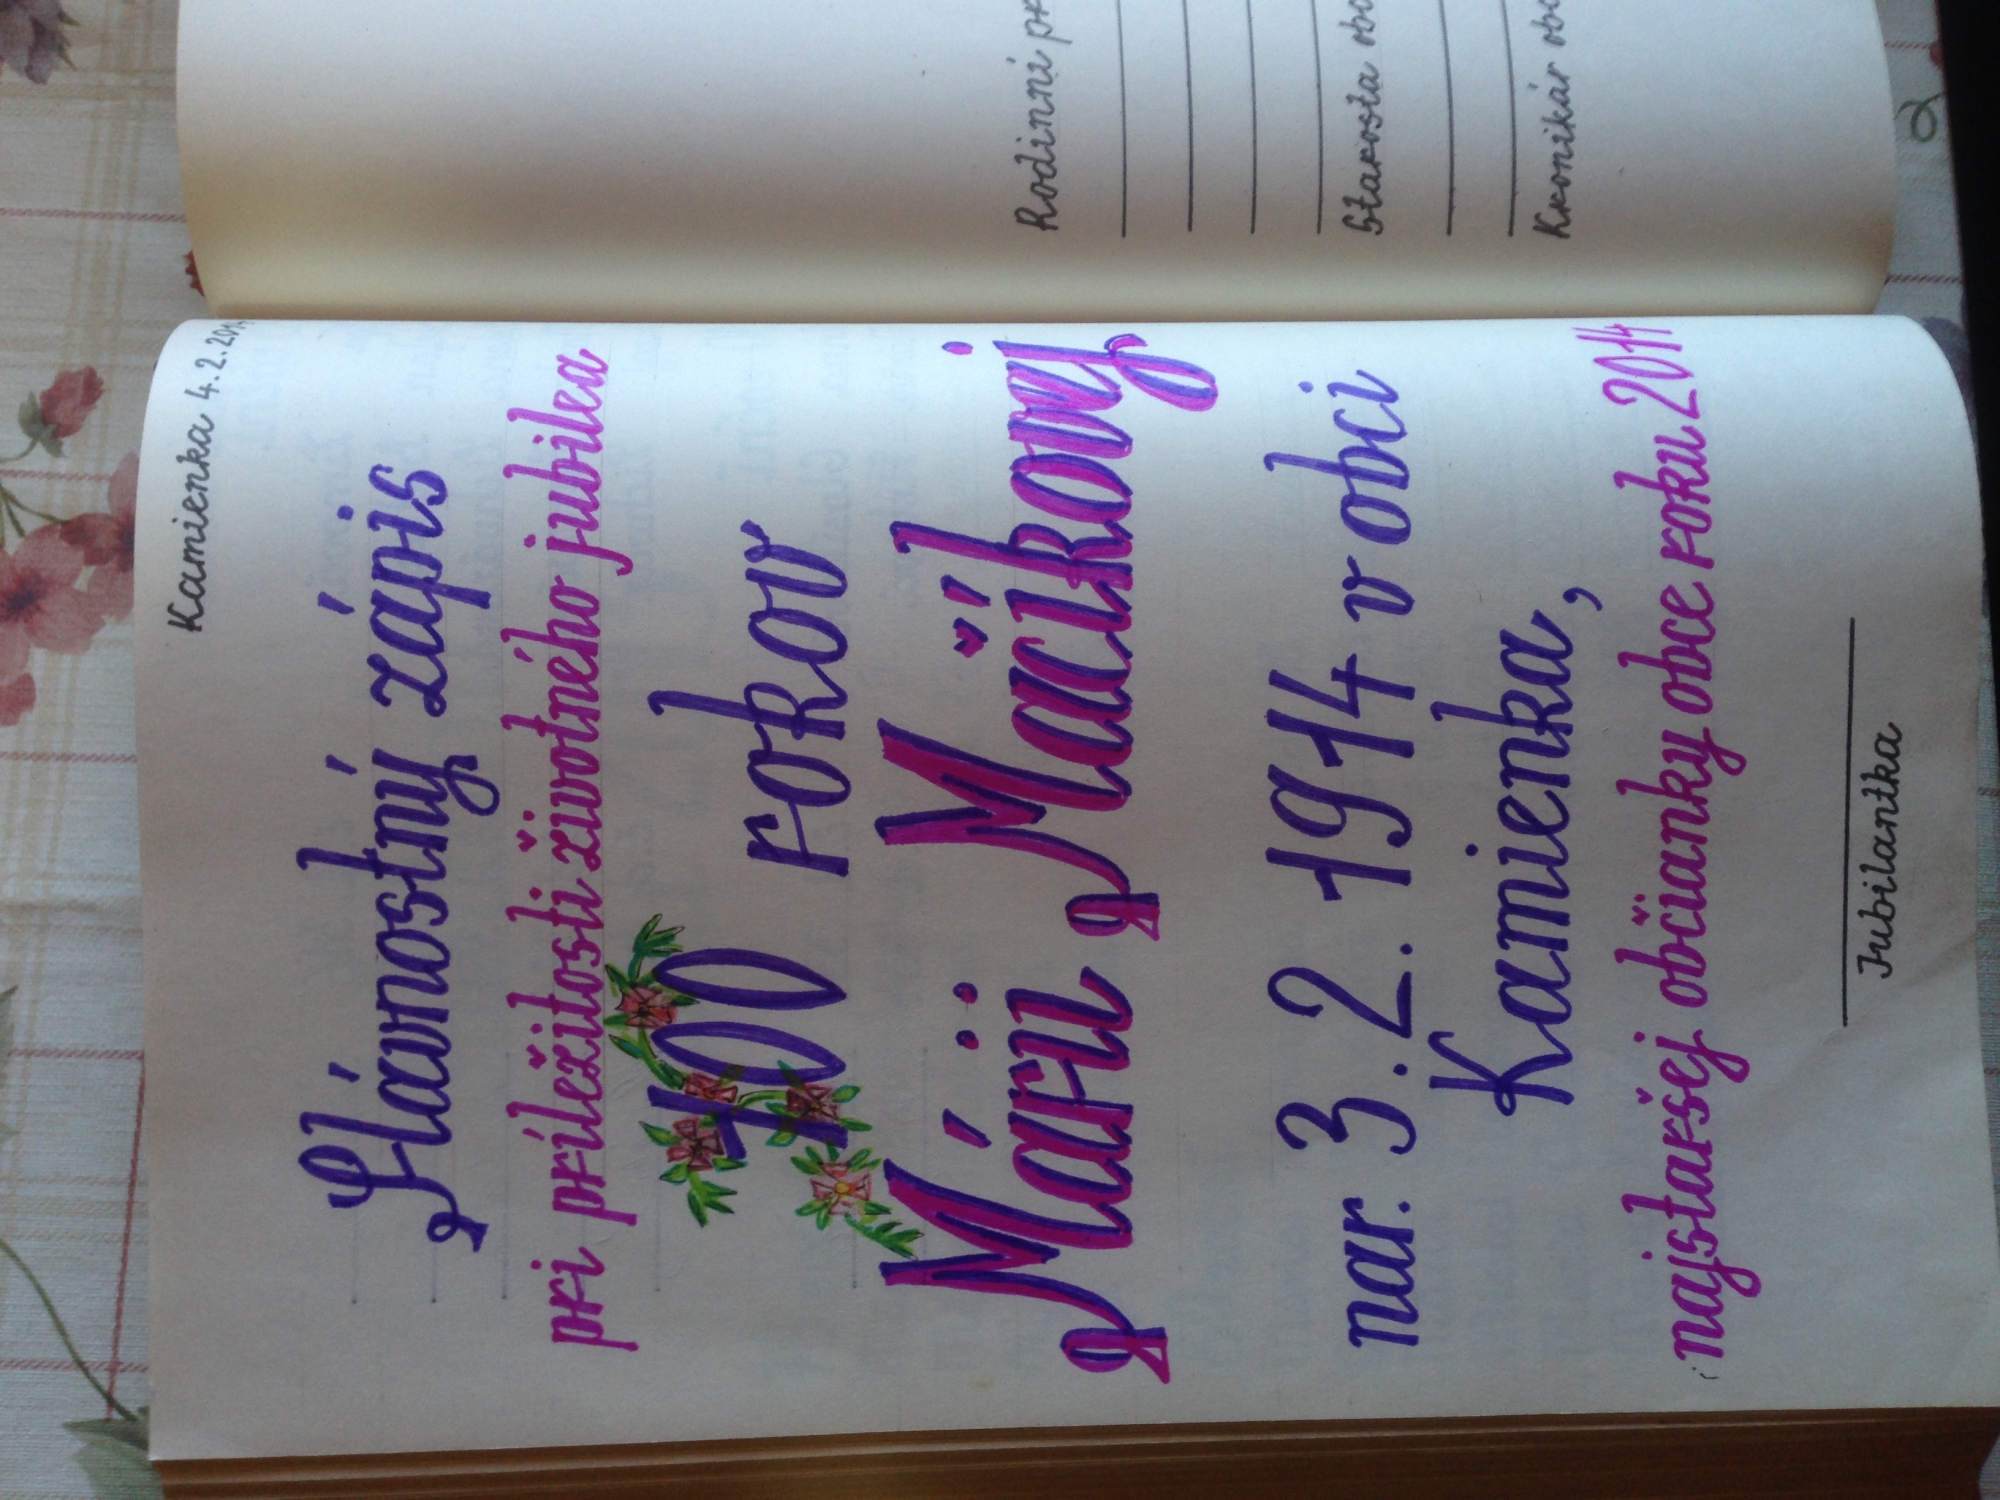 Kamienka 4.2.2014
Slávnostný zápis
pri príležitosti životného jubilea
100 rokov
Márii Mačíkovej
nar. 3.2.1914 v obci
Kamienka,
najstaršej občianky obce roku 2014
Jubilantka
Rodinní
Starosta
Kronikár